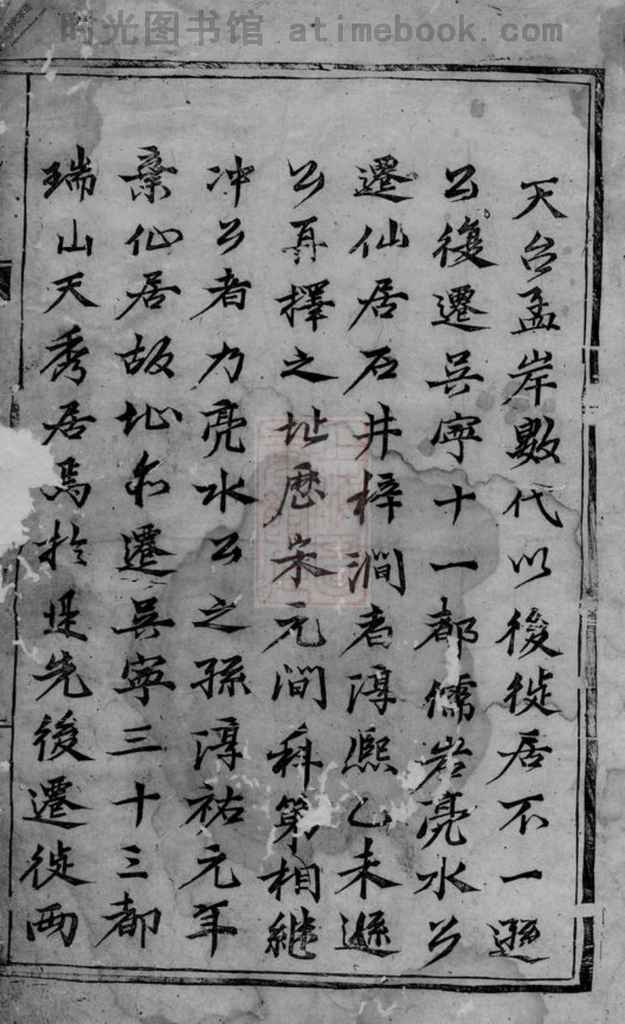 时光图书馆 atimebook.com
天台孟岸數代以後徙居不一遜
公復遷吳寧十一都儒岩亮水公
遷仙居石井梓澗者淳熙乙未遜
公再擇之址歷宋元澗科第相継
冲公者乃亮水公之孫淳祐元年
棄仙居故址尒遷吳寧三十三都
瑞山天秀居焉於是先後遷徙兩